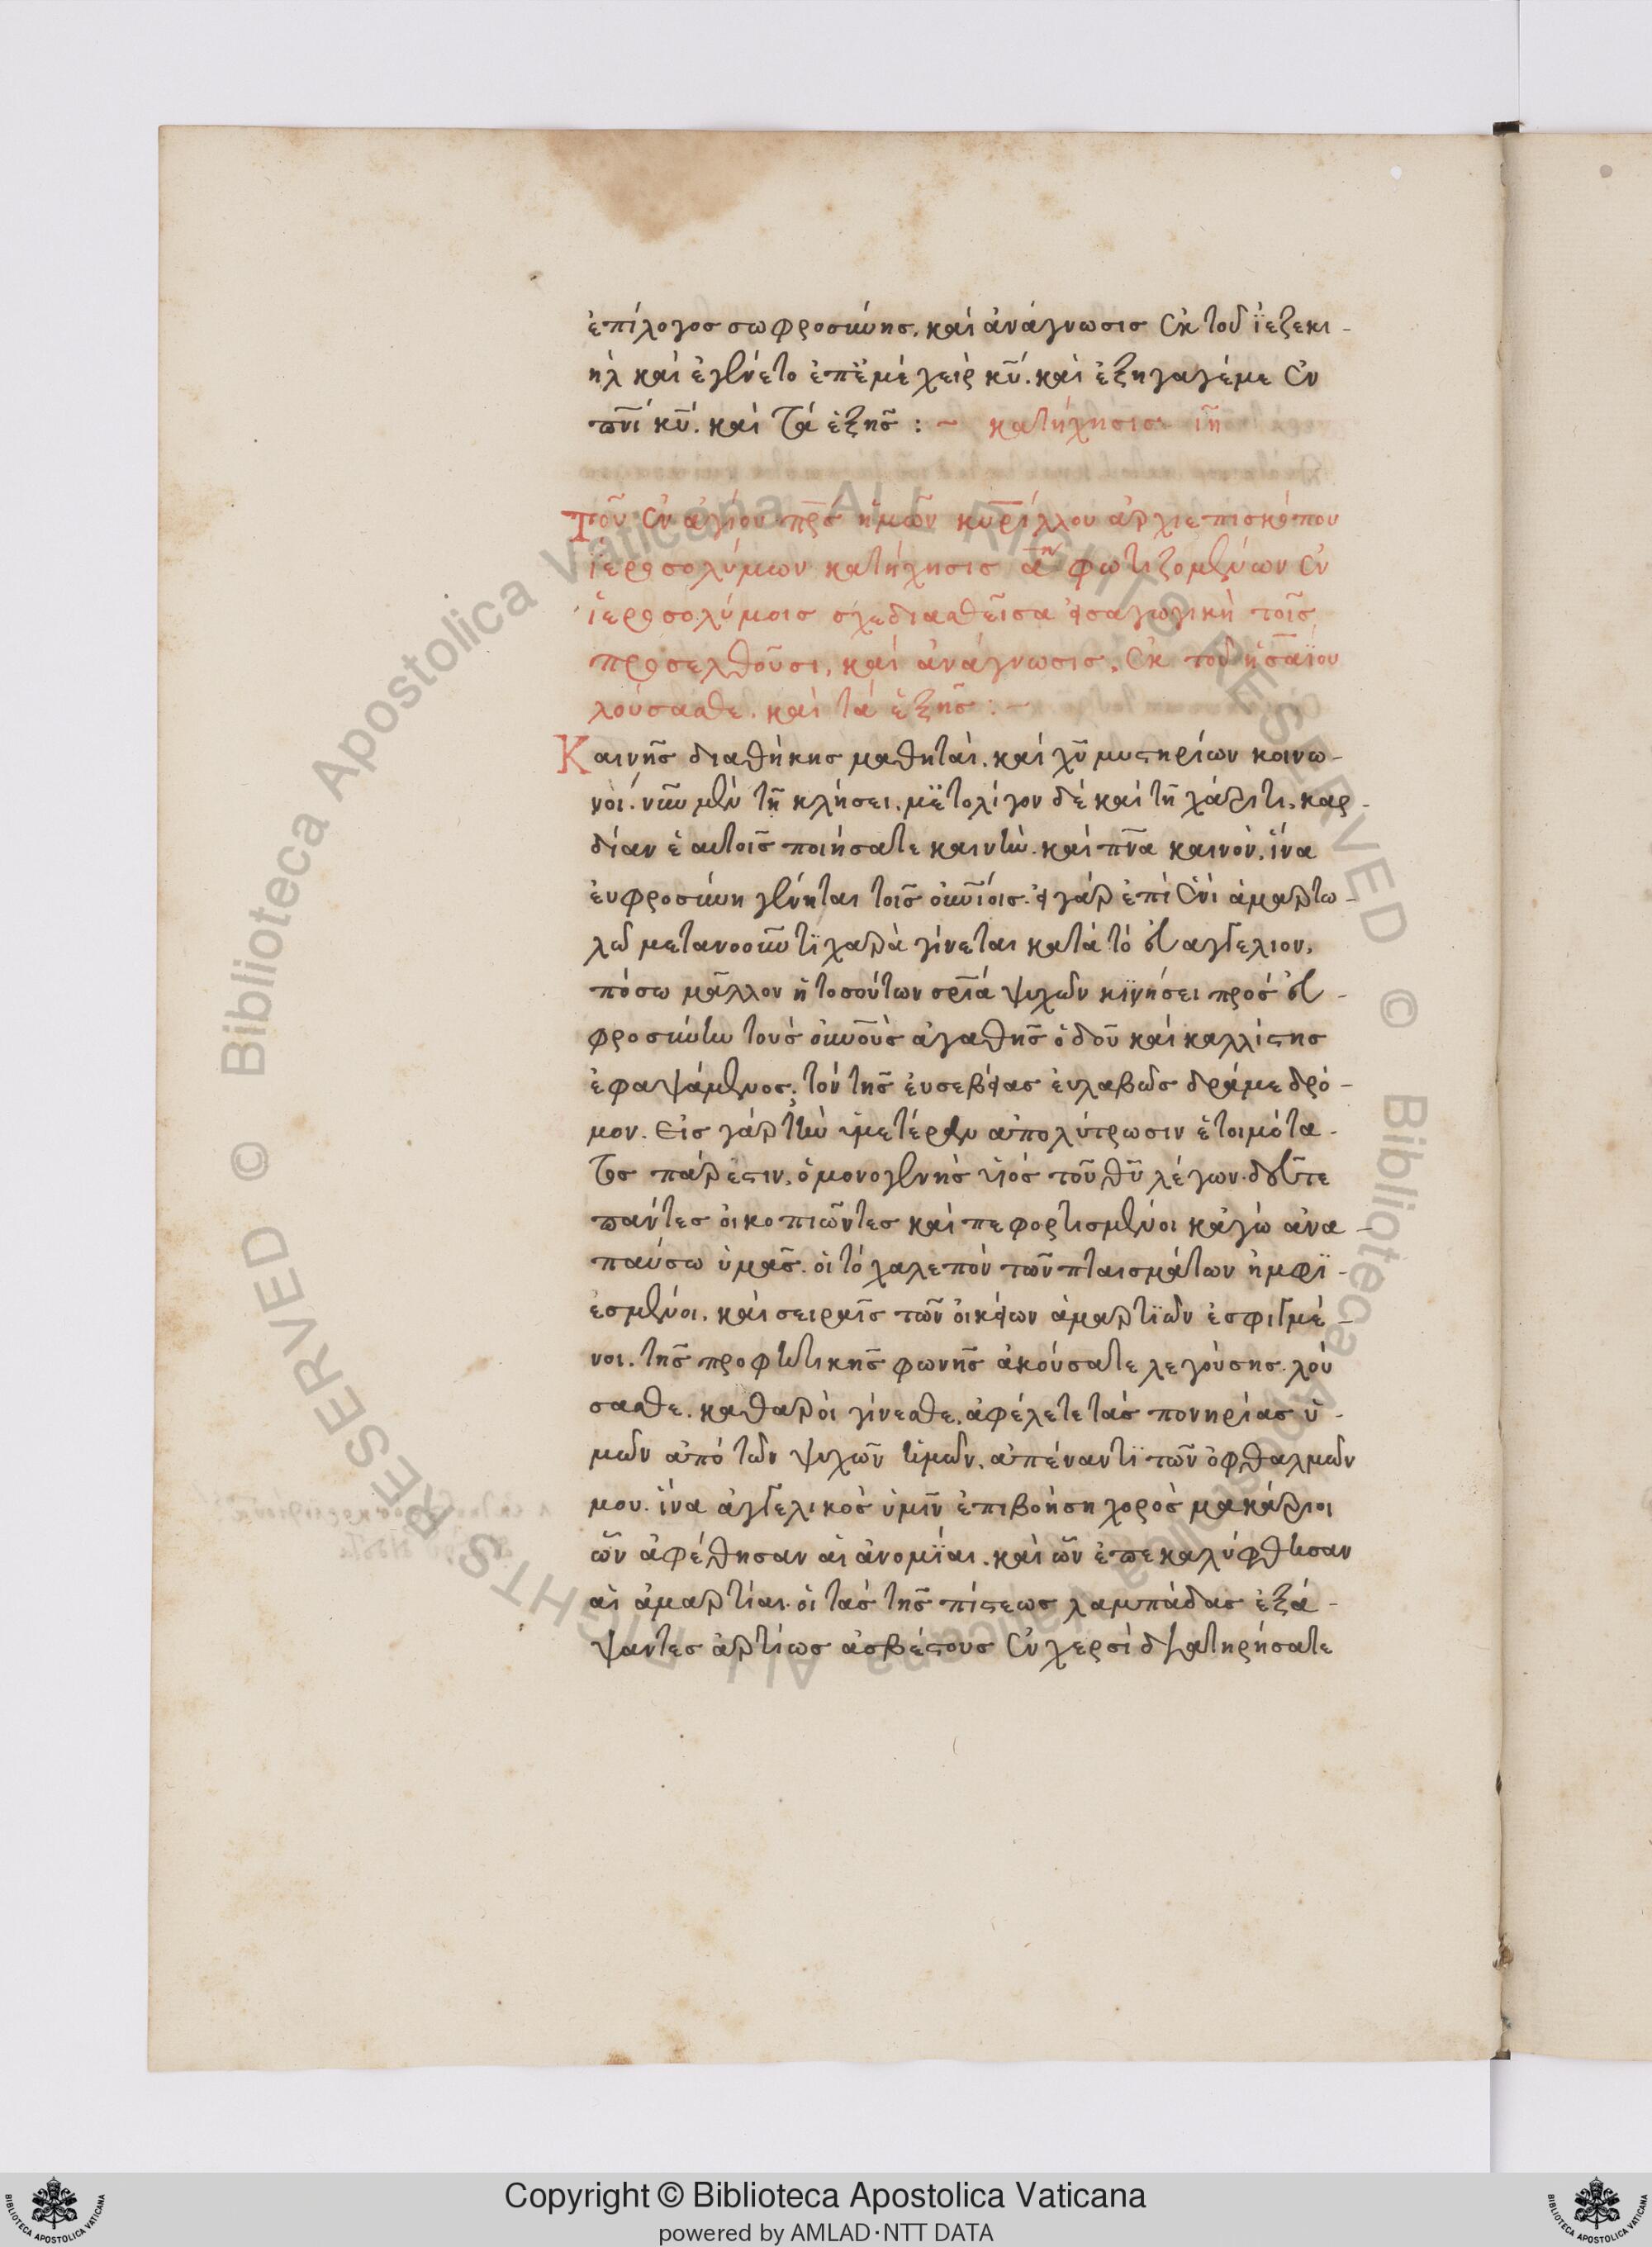 ἐπίλογοσ σωφροσύνησ. καὶ ἀνάγνωσισ ἐκ τοῦ ϊεζεκι-
ὴλ καὶ ἐγένετο ἐπ' ἐμὲ χεὶρ κ̅υ̅. καὶ ἐξήγαγέ με ἐν
π̅ν̅ι κ̅υ̅. καὶ τὰ ἑξῆσ : ~ κατήχησισ ι̅η̅
Τοῦ ἐν ἁγίου π̅ρ̅σ ἡμῶν κυρίλλου ἀρχιεπισκόπου
ἱεροσολύμων κατήχησισ α̅η φωτιζομένων ἐν
ἱεροσολύμοισ σχεδιασθεῖσα εἰσαγωγικὴ τοῖσ
προσελθοῦσι, καὶ ἀνάγνωσισ. ἐκ τοῦ ἡσαΐου
λούσασθε. καὶ τὰ ἑξῆσ : ~
Καινῆσ διαθήκησ μαθηταὶ. καὶ χ̅υ̅ μυστηρίων κοινω-
νοὶ. νῦν μὲν τῇ κλήσει. μετ' ολίγον δὲ καὶ τῇ χάριτι. καρ-
δίαν ἑαυτοῖσ ποιήσατε καινὴν. καὶ π̅ν̅α καινὸν. ἵνα
ἐυφροσύνη γένηται τοῖσ ὀυνίοισ. εἰ γὰρ ἐπὶ ἑνὶ ἁμαρτω-
λῶ μετανοοῦντϊ χαρὰ γίνεται κατὰ τὸ ἐυαγγελιον.
πόσω μᾶλλον ἡ τοσούτων σ̅ρ̅ια ψυχῶν κϊνήσει πρὸσ ἐυ-
φροσύνην τοὺσ ὀυνοὺσ ἀγαθῆσ ὁδοῦ καὶ καλλίστησ
ἐφαψάμενοσ. τὸν τῆσ ἐυσεβείασ ἐυλαβῶσ δράμε δρό-
μον. Εἰσ γὰρ τὴν ὑμετέραν ἀπολύτρωσιν ἑτοιμότα-
τοσ πάρεστιν. ὁ μονογενὴσ υἱὸσ τοῦ θ̅υ̅ λέγων. δεῦτε
πάντεσ ὁι κοπιῶντεσ καὶ πεφορτισμένοι κἀγὼ ἀνα-
παύσω ὑμᾶσ. ὁι τὸ χαλεπὸν τῶν πταισμάτων ἠμφϊ-
εσμένοι. καὶ σειραῖσ τῶν ὀικείων ἁμαρτϊῶν ἐσφιγμέ-
νοι. τῆσ προφητικῆσ φωνῆσ ἀκούσατε λεγούσησ. λού
σασθε. καθαροὶ γίνεσθε. ἀφέλετε τὰσ πονηρίασ ὑ-
μῶν ἀπὸ τῶν ψυχῶν ὑμῶν. ἀπέναντϊ τῶν ὀφθαλμῶν
μου. ἵνα ἀγγελικὸσ ὑμῖν ἐπιβοήση χορὸσ μακάριοι
ὧν ἀφέθησαν ἁι ἀνομΐαι. καὶ ὧν ἐπεκαλύφθησαν
ἁι ἁμαρτίαι. ὁι τὰσ τῆσ πίστεωσ λαμπάδασ ἐξά-
ψαντεσ ἀρτίωσ ἀσβέστουσ ἐν χερσὶ διατηρήσατε
Copyright © Biblioteca Apostolica Vaticana
powered by AMLAD·NTT DATA
© Biblioteca Apostolica Vaticana ALL RIGHTS RESERVED © Biblioteca Apostolica Vaticana ALL RIGHTS RESERVED
BIBLIOTECA APOSTOLICA VATICANA
BIBLIOTECA APOSTOLICA VATICANA